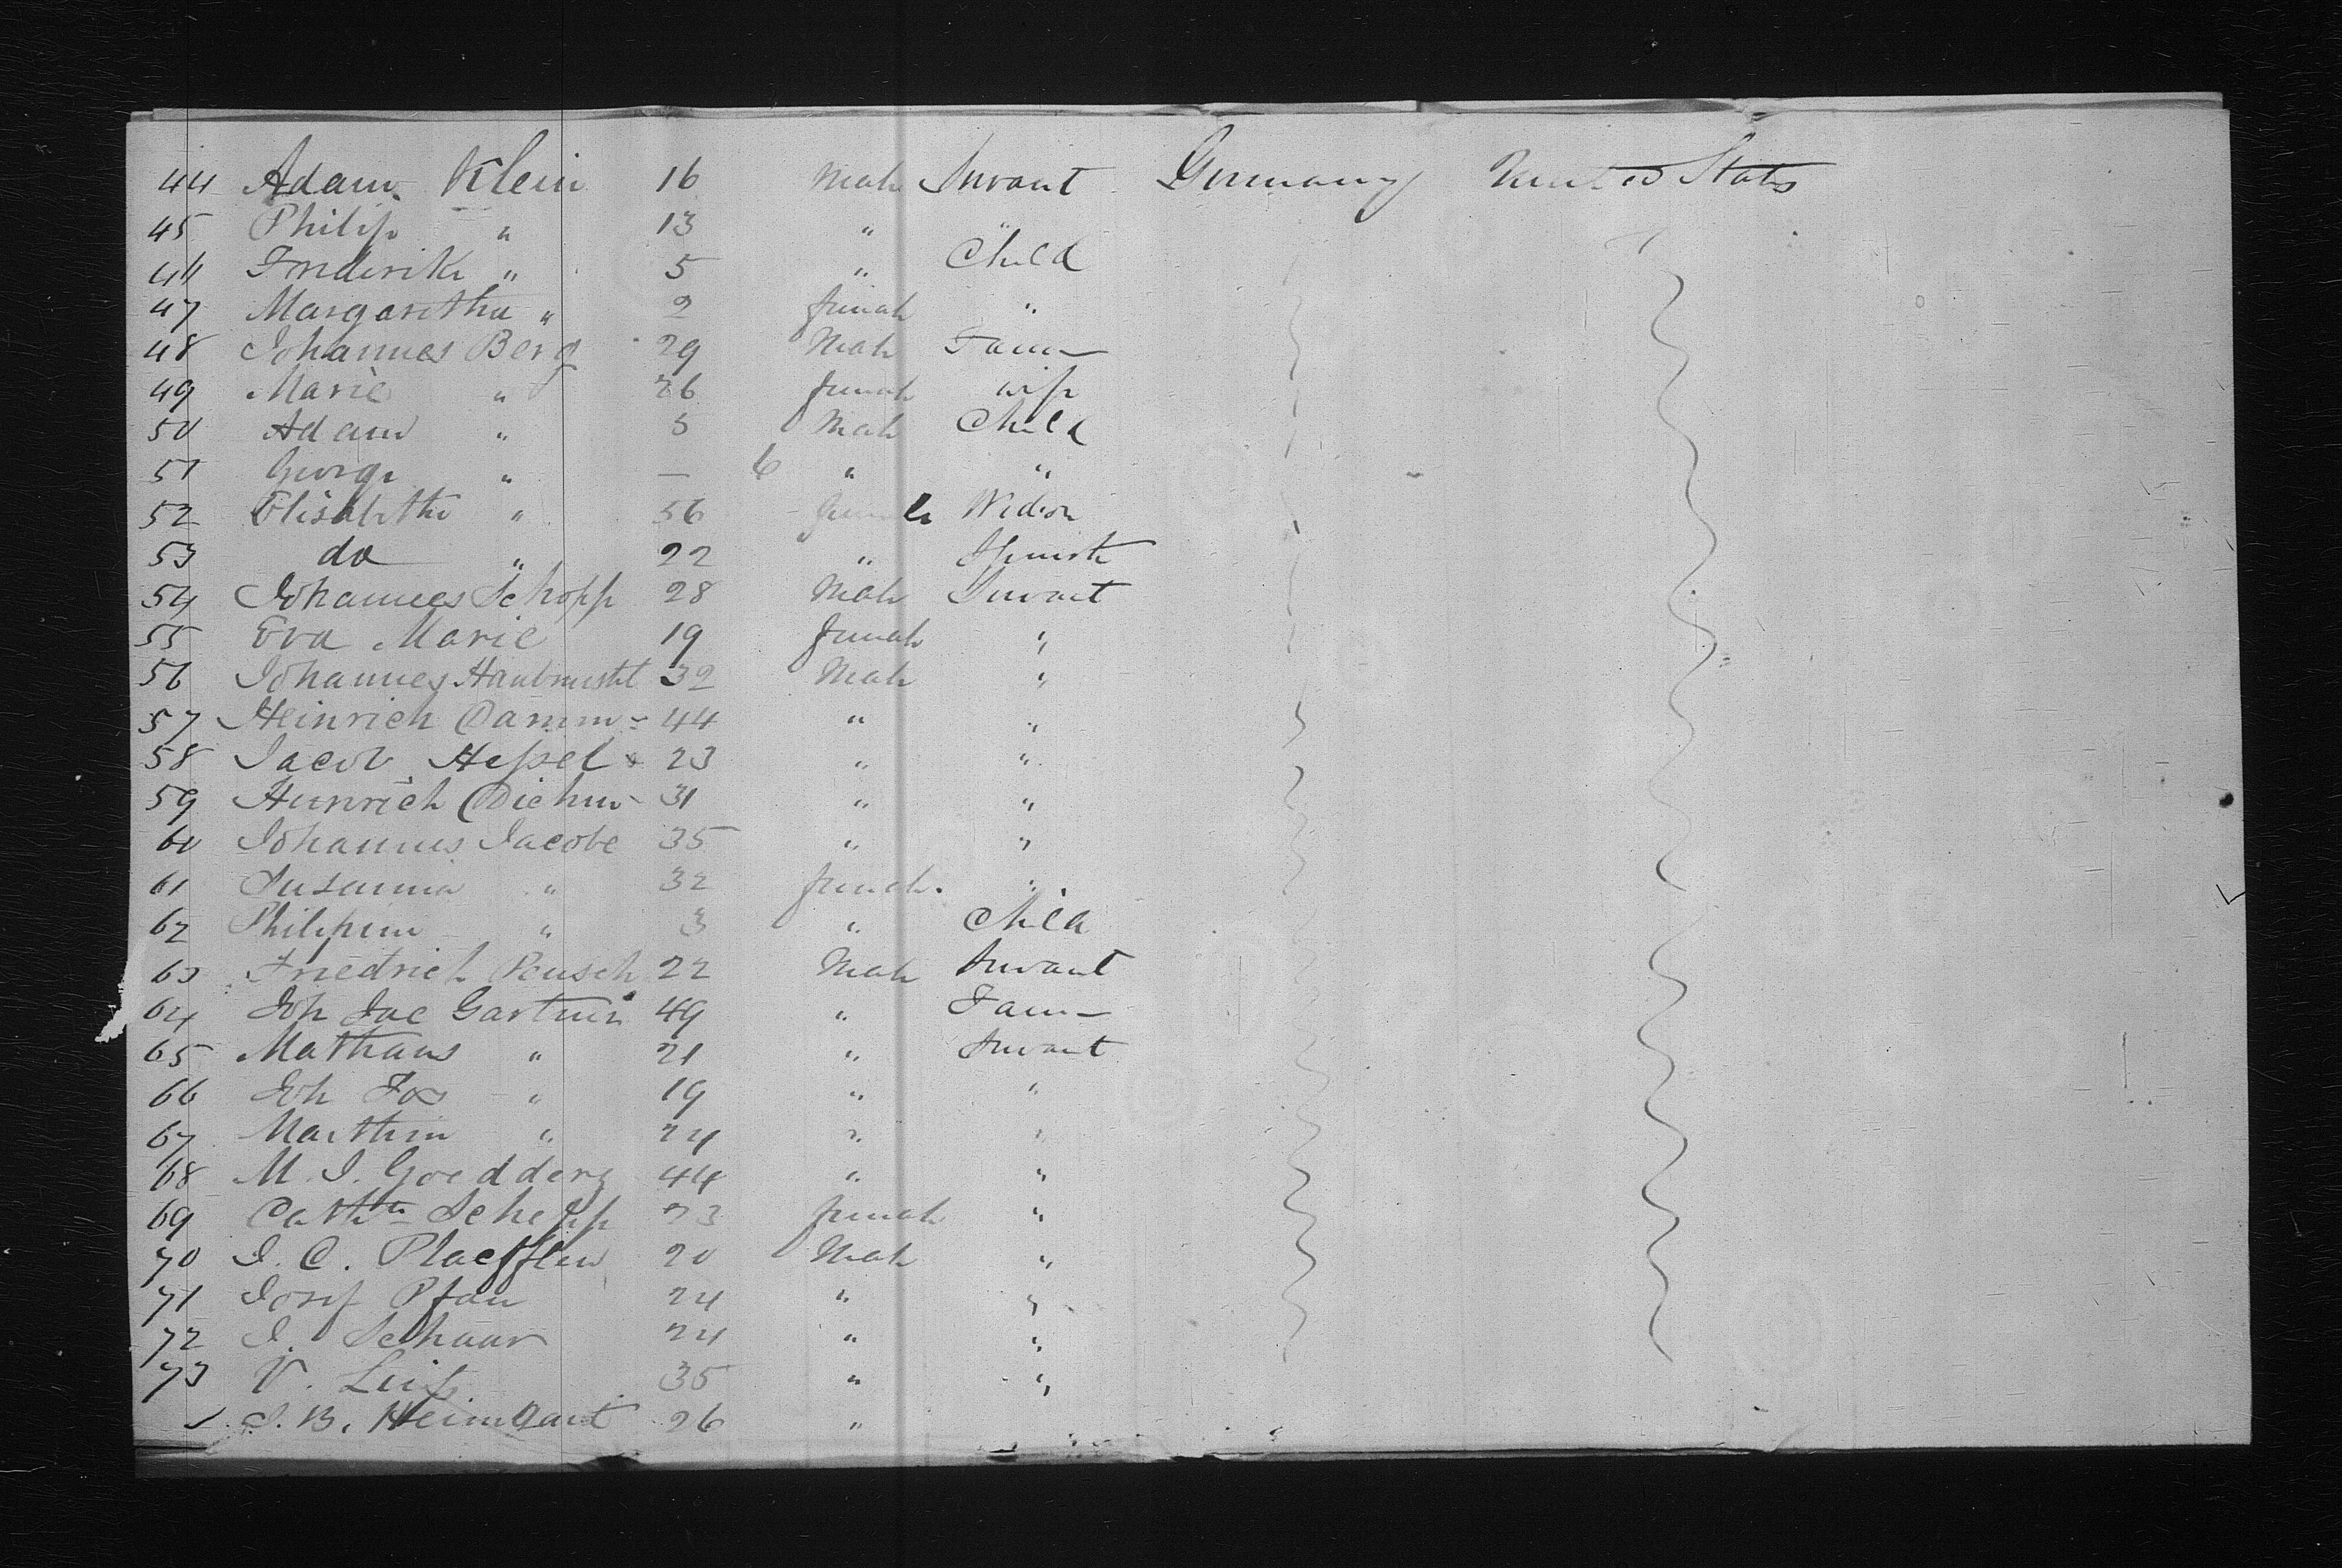 44 Adam Klein 16 Male Servant Germany United States
45 Philip " 13 " "
46 Frederike " 5 " Child
47 Margaretha " 2 female "
48 Johannes Berg 29 Male Farmer
49 Marie " 26 female wife
50 Adam " 5 Male Child
51 George " — 6 " "
52 Elisabethe " 56 female Widow
53 do " 22 " Spinster
54 Johannes Schopp 28 Male Servant
55 Eva Marie 19 female "
56 Johannes 32 Male "
57 Heinrich Damm 44 " "
58 Jacob Hessel 23 " "
59 Heinrich Diehm 31 " "
60 Johannes Jacobe 35 " "
61 Susanna " 32 female "
62 Philipine " 3 " Child
63 Friedrich Reusch 22 Male Servant
64 Joh Jac Gartner 49 " Farmer
65 Mathaus " 21 " Servant
66 Joh Jos " 19 " "
67 " 24 " "
68 M. J. Goedderz 44 " "
69 Cath Schepp 23 female "
70 J. C. 20 Male "
71 Josef Pfau 24 " "
72 J. Schaar 24 " "
73 V. 35 " "
J. B. 26 "